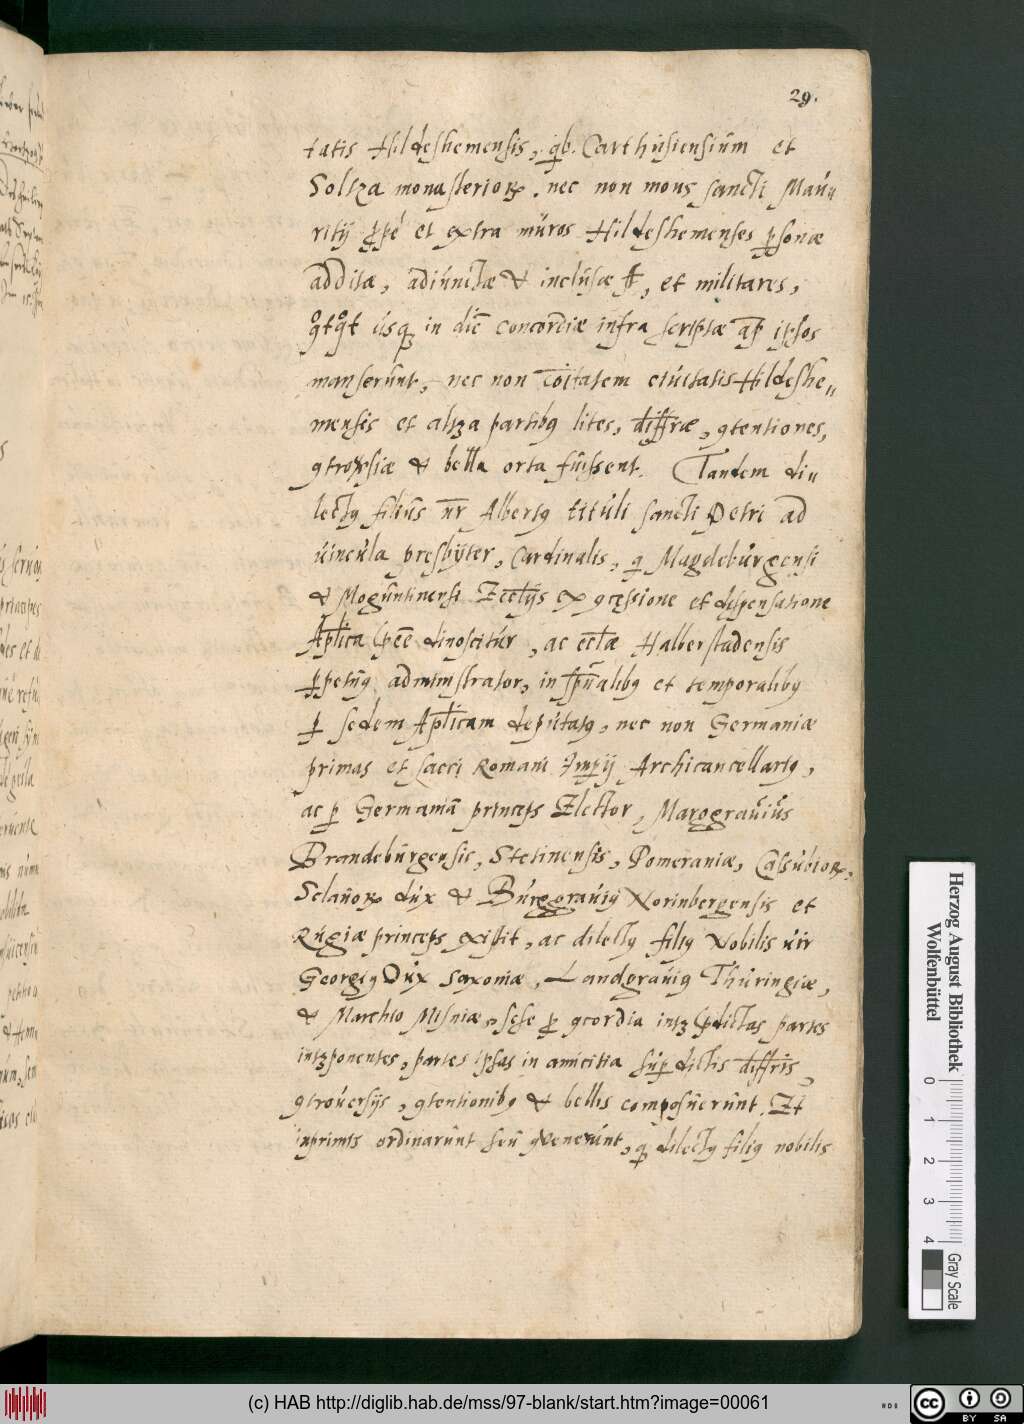 29.
tatis Hildeshemensis, qb. Carthusiensium et
Soltza monasteriorꝝ, nec non mons sancti Mau„
ritij ꝓpé et extra muros Hildeshemenses ꝑsonæ
additæ, adiunctæ & inclusæ et militares,
usqꝫ in concordiæ infra scriptæ ipsos
manserunt, nec non coitatem ciuitatis Hildeshe„
mensis et altꝫa partibꝰ lites, diffræ, ꝯtentiones,
ꝯtroꝟsiæ & bella orta fuissent. Tandem di„
lectꝰ filius nr Albertꝰ tituli sancti Petri ad
uincula presbyter, Cardinalis, q Magdeburgensi
& Moguntinensi Eccliis ex ꝯcessione et dispensatione
Aplica dinoscitur, ac eccłæ Halberstadensis
ꝑpetuꝰ administrator, in spūalibꝰ et temporalibꝰ
ꝑ sedem Aplicam deputatꝰ, nec non Germaniæ
primas et sacri Romani Impij Archicancellariꝰ,
ac ꝑ Germaniā princeps Elector, Marograuius
Brandeburgensis, Stetinensis, Pomeraniæ, Cassubiorꝝ,
Sclauorꝝ dux & Burggrauiꝰ Norinbergensis et
Rugiæ princeps existit, ac dilectꝰ filiꝰ Nobilis uir
Georgiꝰ Dux Saxoniæ, Landgrauiꝰ Thuringiæ,
& Marchio Misniæ, sese ꝓ ꝯcordia intꝫ dictas partes
intꝫponentes, partes ipsas in amicitia suꝑ dictis diffris,
ꝯtrouersijs, ꝯtentionibꝰ & bellis composuerunt. Et
inprimis ordinarunt seu ꝯuenerunt, dilectꝰ filiꝰ nobilis
Herzog August Bibliothek
Wolfenbüttel
0 1 2 3 4
Gray Scale
(c) HAB http://diglib.hab.de/mss/97-blank/start.htm?image=00061
cc BY SA